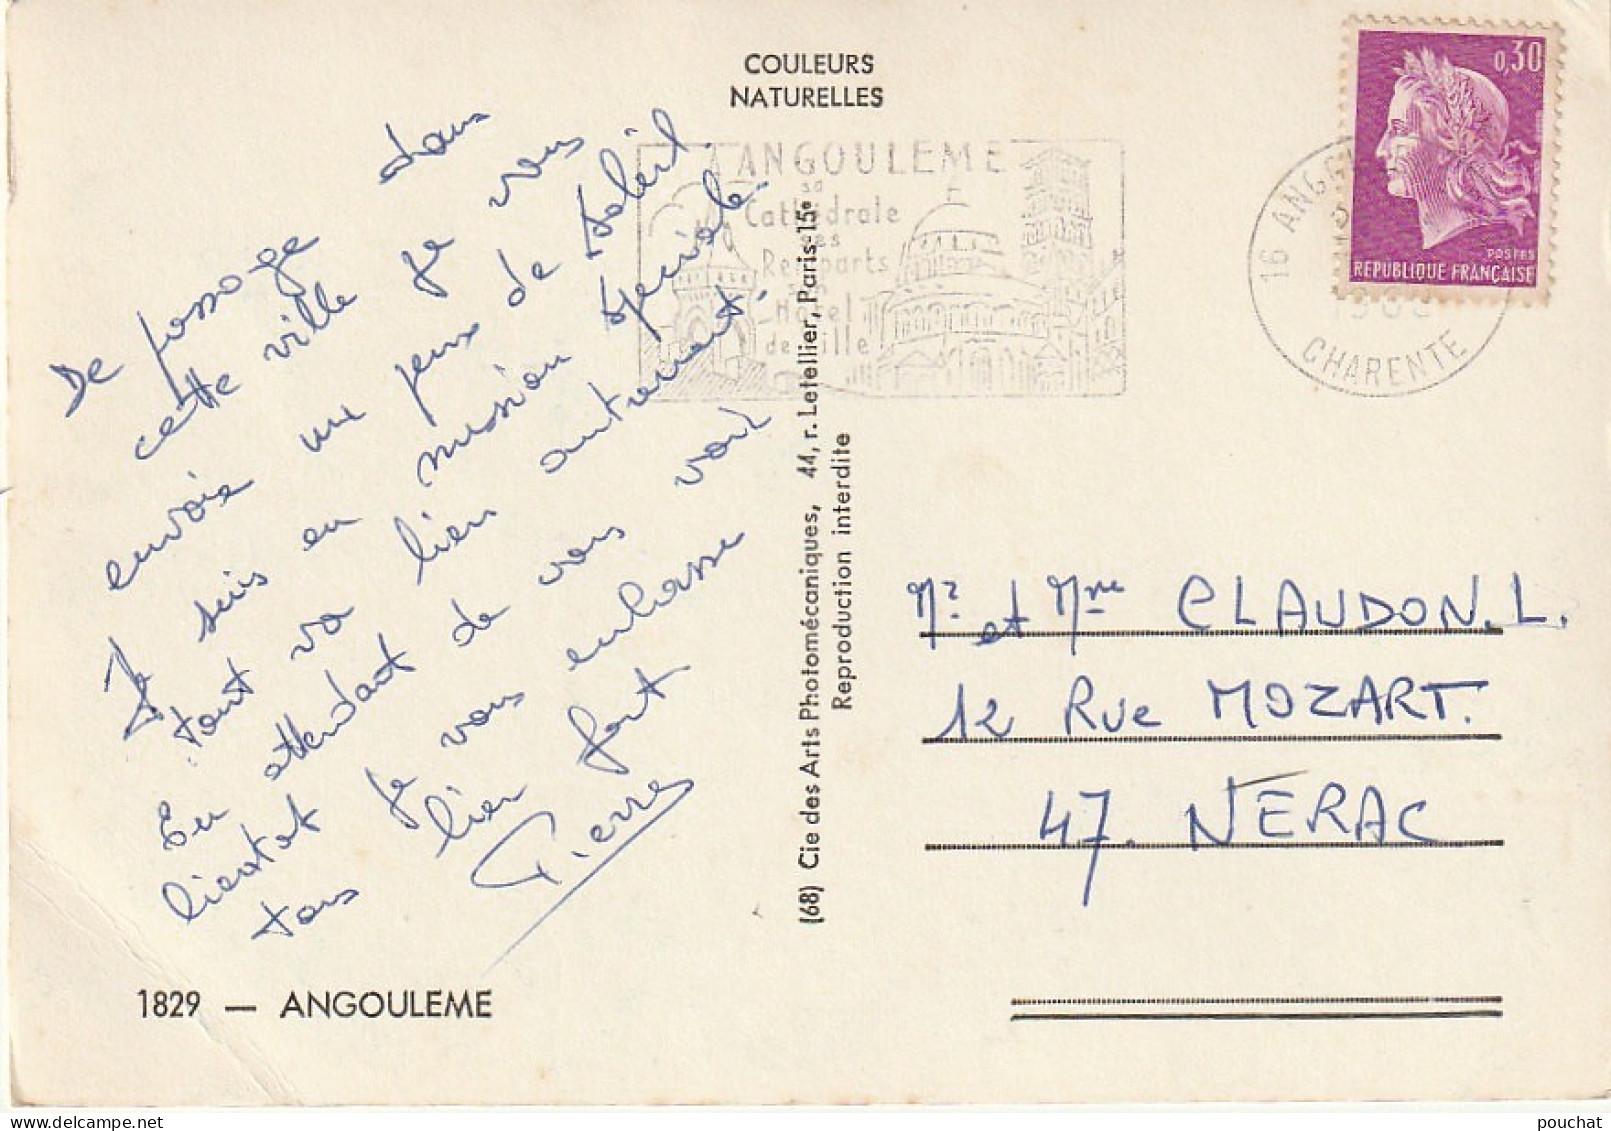 COULEURS
NATURELLES
De passage dans
cette ville je vous
envoie un peux de soleil
Je suis en mission spéciale.
tout va bien autrement.
En attendant de vous voir
bientot je vous embrasse
tous bien fort
Pierre
1829 — ANGOULEME
(68) Cie des Arts Photomécaniques, 44, r. Letellier, Paris-15e
Reproduction interdite
A ANGOULEME
sa
Cathédrale
ses
Remparts
son
Hôtel
de Ville
16 ANGOU
CHARENTE
0,30
POSTES
REPUBLIQUE FRANÇAISE
Mr et Mme CLAUDON. L.
12 Rue MOZART.
47. NERAC
pouchat